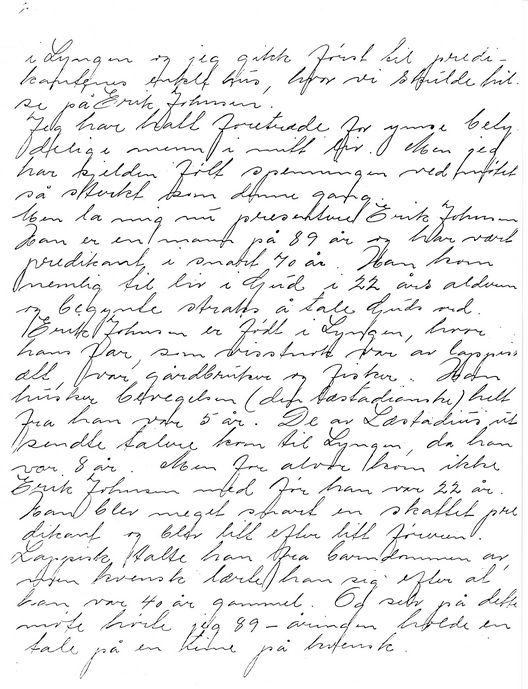 i Lyngen og jeg gikk først til predi-
kantenes enkle hus, hvor vi skulde hil-
se på Erik Johnsen.
Jeg har hatt foretræde for ymse bety-
delige menn i mitt liv. Men jeg
har sjelden følt spenningen ved møtet
så sterkt som denne gang.
Men la mig nu presentere Erik Johnsen
Han er en mann på 89 år og har vært
predikant i snart 70 år. Han kom
nemlig til liv i Gud i 22 års alderen
og begynte straks å tale Guds ord.
Erik Johnsen er født i Lyngen, hvor
hans far, som visstnok var av lappisk
ætt, var gårdbruker og fisker. Han
husker bevegelsen (den læstadianske) helt
fra han var 5 år. De av Læstadius ut
sendte talere kom til Lyngen, da han
var 8 år. Men for alvor kom ikke
Erik Johnsen med før han var 22 år.
Han blev meget snart en skattet pre
dikant og blev litt efter litt føreren.
Lappisk talte han fra barndommen av,
men kvensk lærte han sig efter at
han var 40 år gammel. Og selv på dette
møte hørte jeg 89-åringen holde en
tale på en time på kvensk.